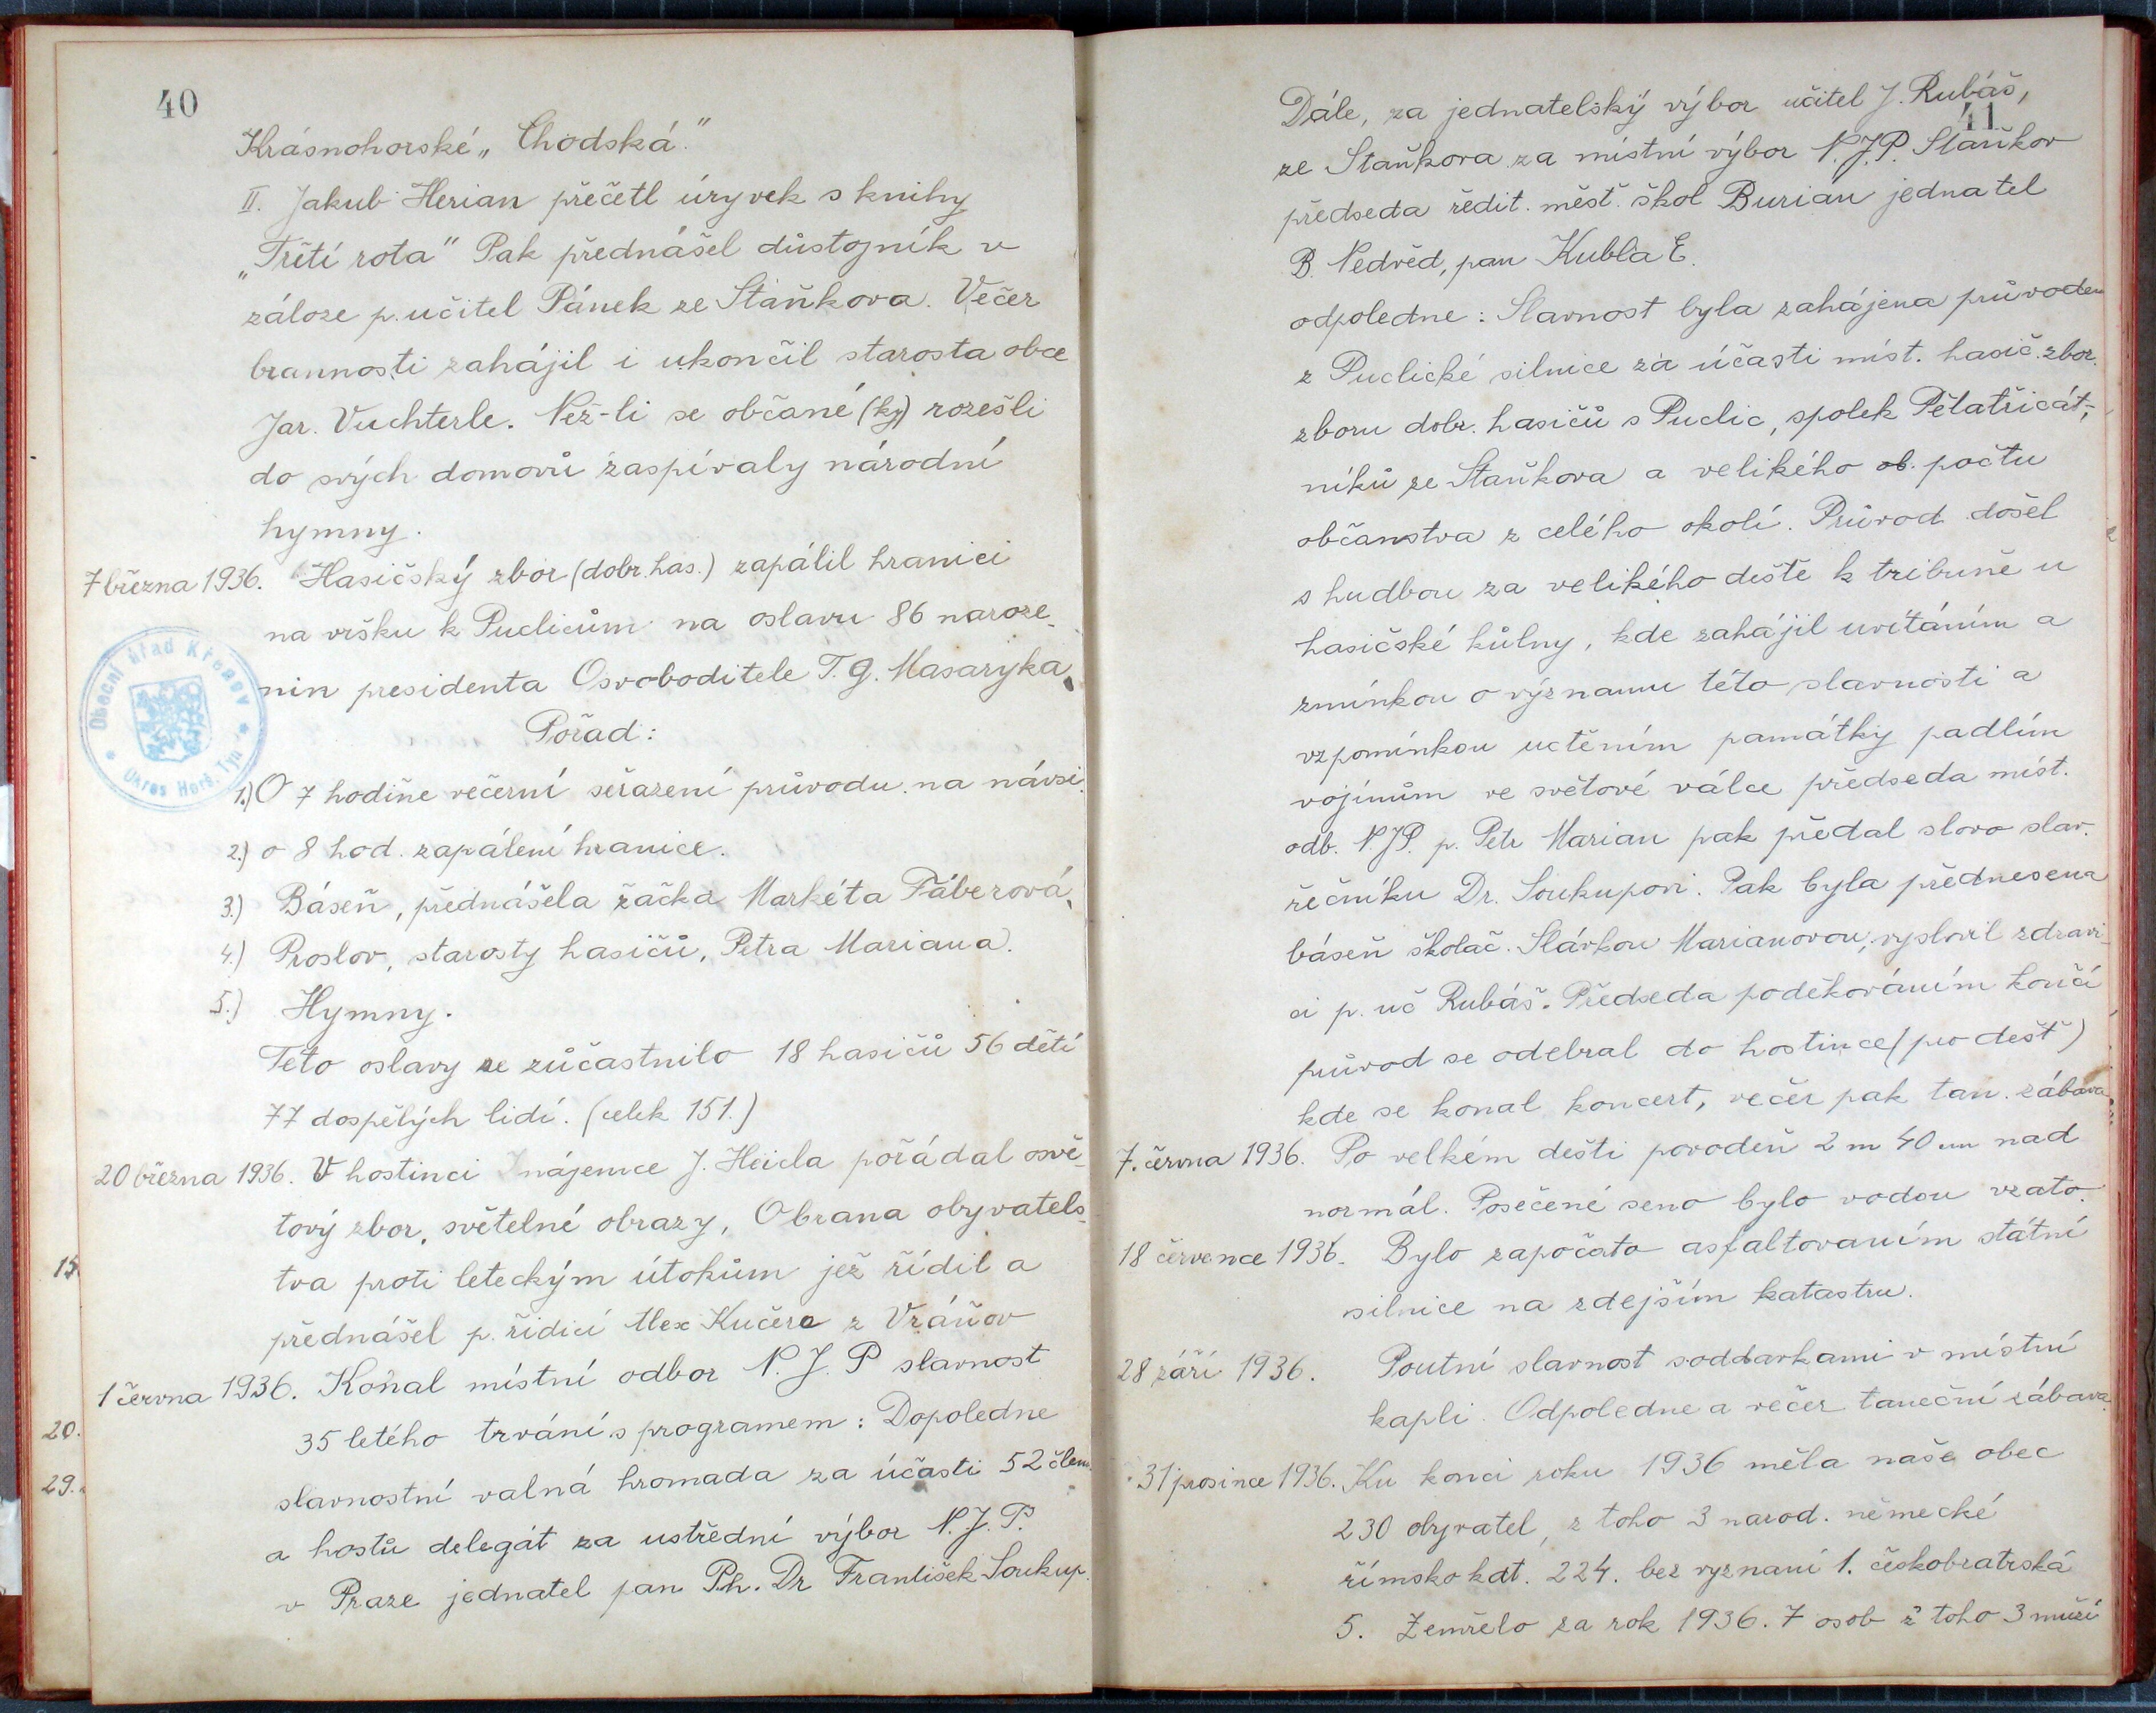 40
Krásnohorské „Chodská."
II. Jakub Herian přečetl úryvek s knihy
„Třetí rota" Pak přednášel důstojník v
záloze p. učitel Pánek ze Staňkova. Večer
brannosti zahájil i ukončil starosta obce
Jar. Vuchterle. Než-li se občané (ky) rozešli
do svých domovů zaspívaly národní
hymny.
7 března 1936. Hasičský zbor (dobr. has.) zapálil hranici
na vršku k Puclicům na oslavu 86 naroze-
nin presidenta Osvoboditele T. G. Masaryka.
Pořad:
1.) O 7 hodině večerní seřazení průvodu na návsi.
2.) o 8 hod. zapálení hranice.
3.) Báseň, přednášela žačka Markéta Fáberová.
4.) Proslov, starosty hasičů, Petra Mariana.
5.) Hymny.
Této oslavy se zůčastnilo 18 hasičů 56 dětí
77 dospělých lidí. (celek 151.)
20 března 1936. V hostinci nájemce J. Heicla pořádal osvě-
tový zbor, světelné obrazy, Obrana obyvatels-
tva proti leteckým útokům jež řídil a
přednášel p. řidící Alex Kučera z Vráňov
1 června 1936. Konal místní odbor N. J. P slavnost
35 letého trvání s programem: Dopoledne
slavnostní valná hromada za účasti 52 člen.
a hostů delegát za ustřední výbor N. J. P.
v Praze jednatel pan Ph. Dr František Soukup.
Obecní úřad Křenovy
Okres Horš. Týn
15
20.
29.
41
Dále, za jednatelský výbor učitel J. Rubáš,
ze Staňkova za místní výbor N.J.P. Staňkov
předseda ředit. měšť. škol Burian jednatel
B. Nedvěd, pan Kubla E.
odpoledne: Slavnost byla zahájena průvodem
z Puclické silnice za účasti míst. hasič. zbor.
zboru dobr. hasičů s Puclic, spolek Pětatřicát-
níků ze Staňkova a velikého ob. počtu
občanstva z celého okolí. Průvod došel
s hudbou za velikého deště k tribuně u
hasičské kůlny, kde zahájil uvítáním a
zmínkou o významu této slavnosti a
vzpomínkou uctěním památky padlím
vojínům ve světové válce předseda míst.
odb. N.J.P. p. Petr Marian pak předal slovo slav.
řečníku Dr. Soukupovi. Pak byla přednesena
báseň školač. Slávkou Marianovou, vyslovil zdravi-
ci p. uč Rubáš. Předseda poděkováním končí
průvod se odebral do hostince (pro dešť)
kde se konal koncert, večer pak tan. zábava
7. června 1936. Po velkém dešti povodeň 2 m 40 cm nad
normál. Posečené seno bylo vodou vzato.
18 července 1936. Bylo započato asfaltovaním státní
silnice na zdejším katastru.
28 září 1936. Poutní slavnost soddavkami v místní
kapli. Odpoledne a večer taneční zábava.
31 prosince 1936. Ku konci roku 1936 měla naše obec
230 obyvatel, z toho 3 narod. německé
římsko kat. 224. bez vyznaní 1. českobratrská
5. Zemřelo za rok 1936. 7 osob z toho 3 muži